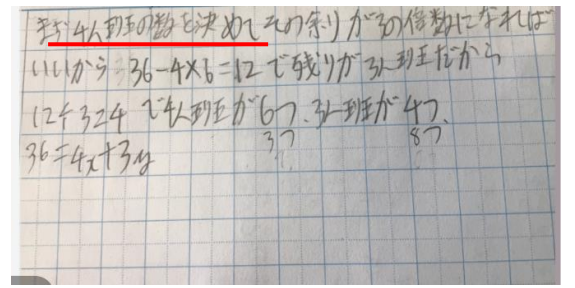 まず4人班の数を決めてその余りが3の倍数になれば
いいから 36-4×6=12で残りが3人班だから
12÷3=4 で4人班が6つ、3人班が4つ、
3つ 8つ
36=4x+3y